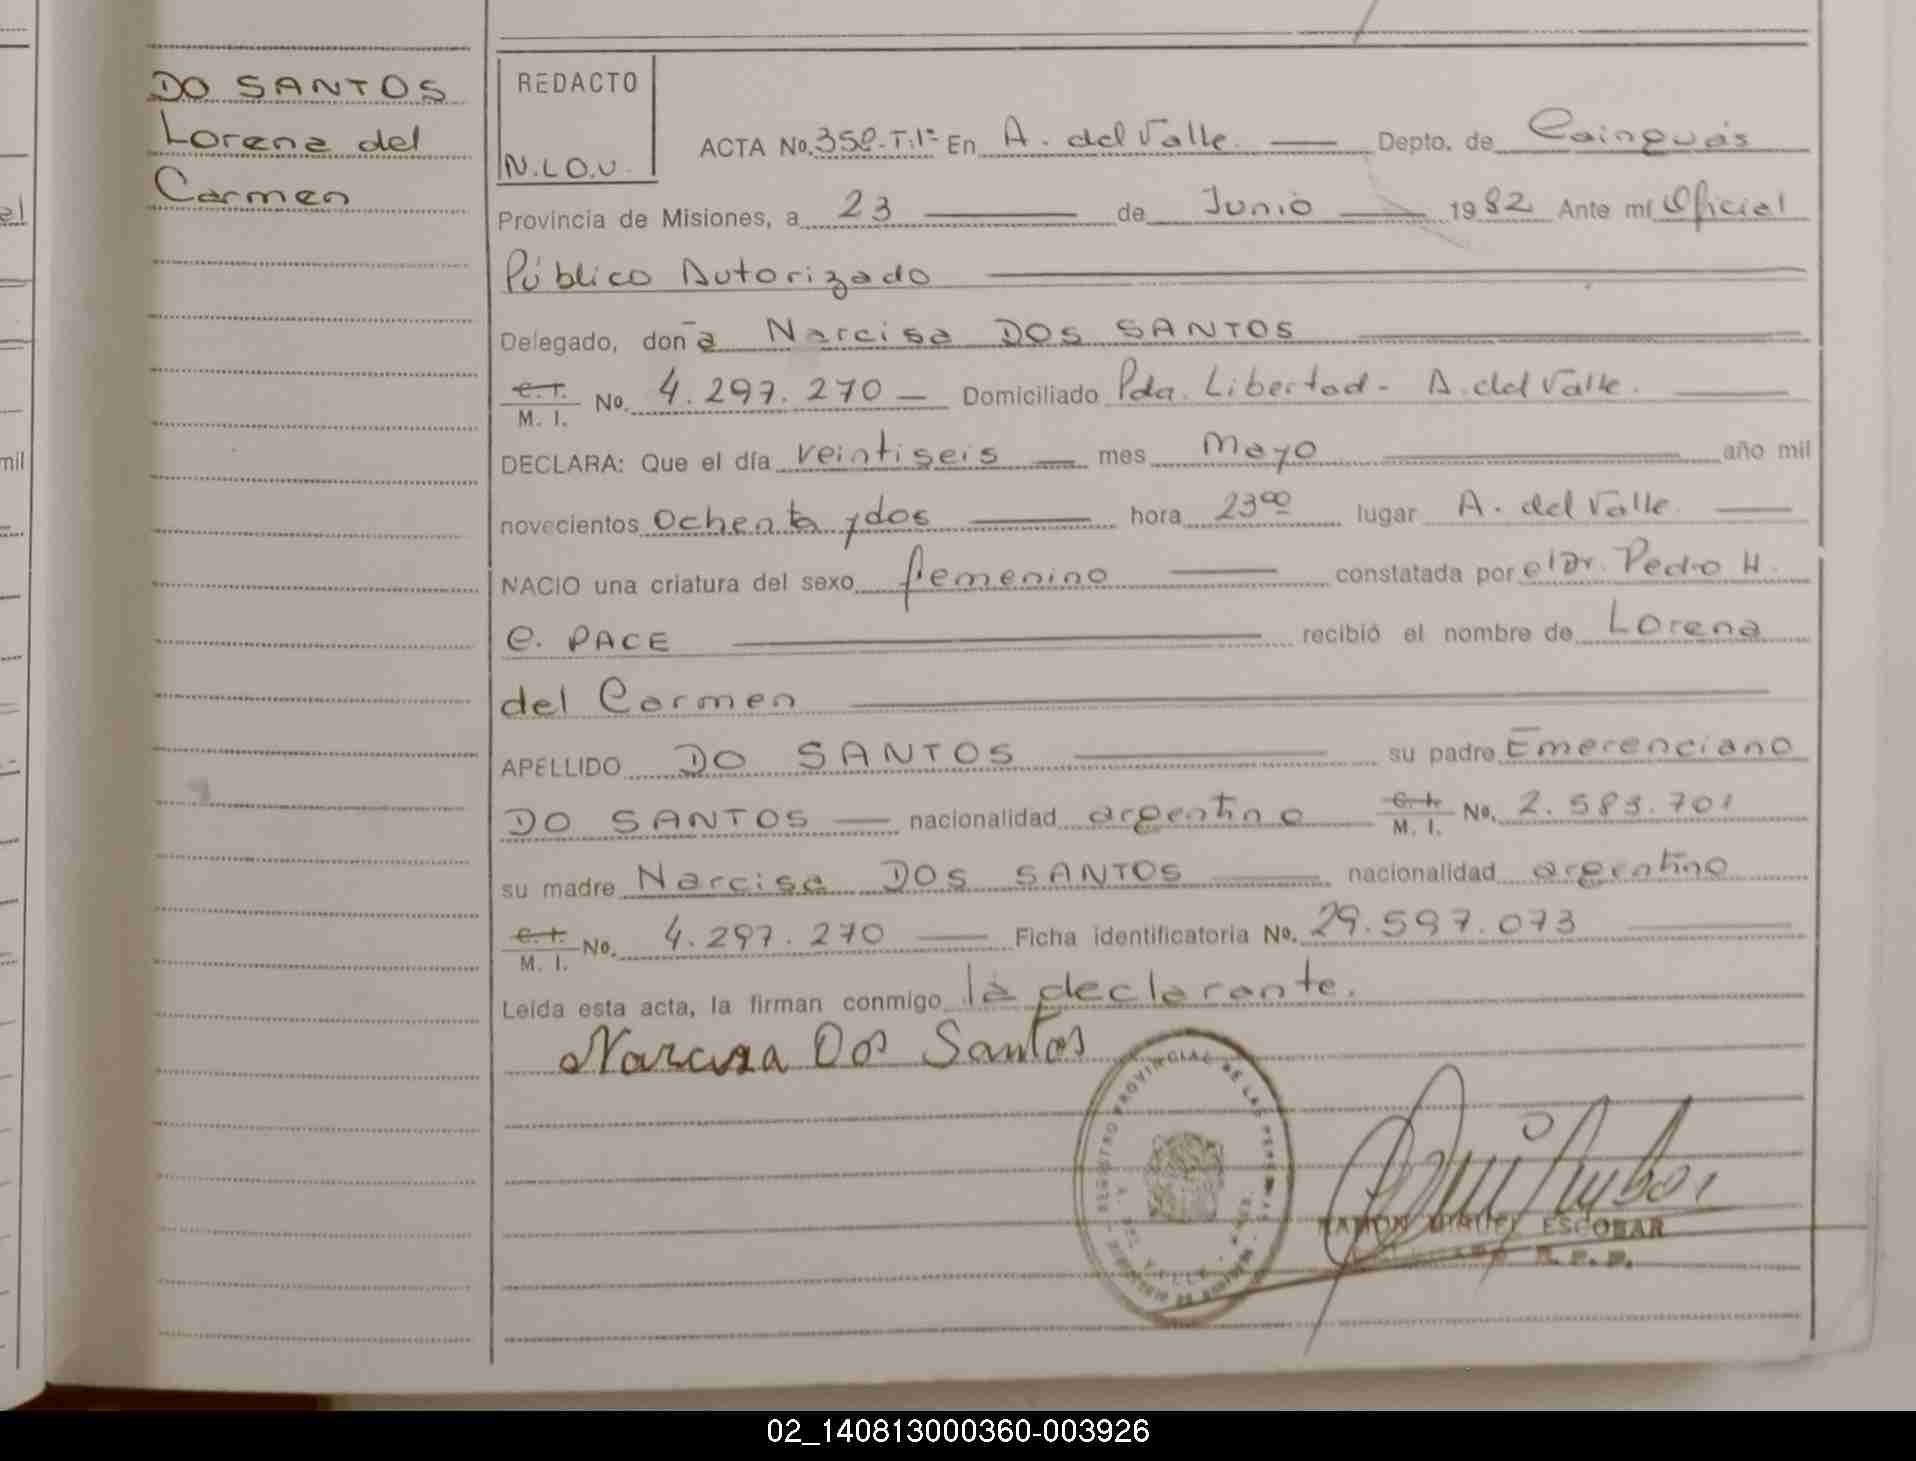 DO SANTOS
Lorena del
Carmen
REDACTO
N.L.O.U.
ACTA No. 358-T:1º En A. del Valle. Depto. de Cainguás
Provincia de Misiones, a 23 de Junio 1982 Ante mí Oficial
Público Autorizado
Delegado, doña Narcisa DOS SANTOS
C.I. M. I. No. 4.297.270 Domiciliado Pda. Libertad - A. del Valle.
DECLARA: Que el día veintiseis mes Mayo año mil
novecientos ochenta y dos hora 23⁰⁰ lugar A. del Valle
NACIO una criatura del sexo femenino constatada por el Dr. Pedro H.
C. PACE recibió el nombre de Lorena
del Carmen
APELLIDO DO SANTOS su padre Emerenciano
DO SANTOS nacionalidad argentino C.I. M. I. No. 2.583.701
su madre Narcisa DOS SANTOS nacionalidad argentino
C.I. M. I. No. 4.297.270 Ficha identificatoria No. 29.597.073
Leída esta acta, la firman conmigo la declarante.
Narcisa Dos Santos
REGISTRO PROVINCIAL DE LAS PERSONAS
RAMON MIGUEL ESCOBAR
R. P. P.
mil
02_140813000360-003926